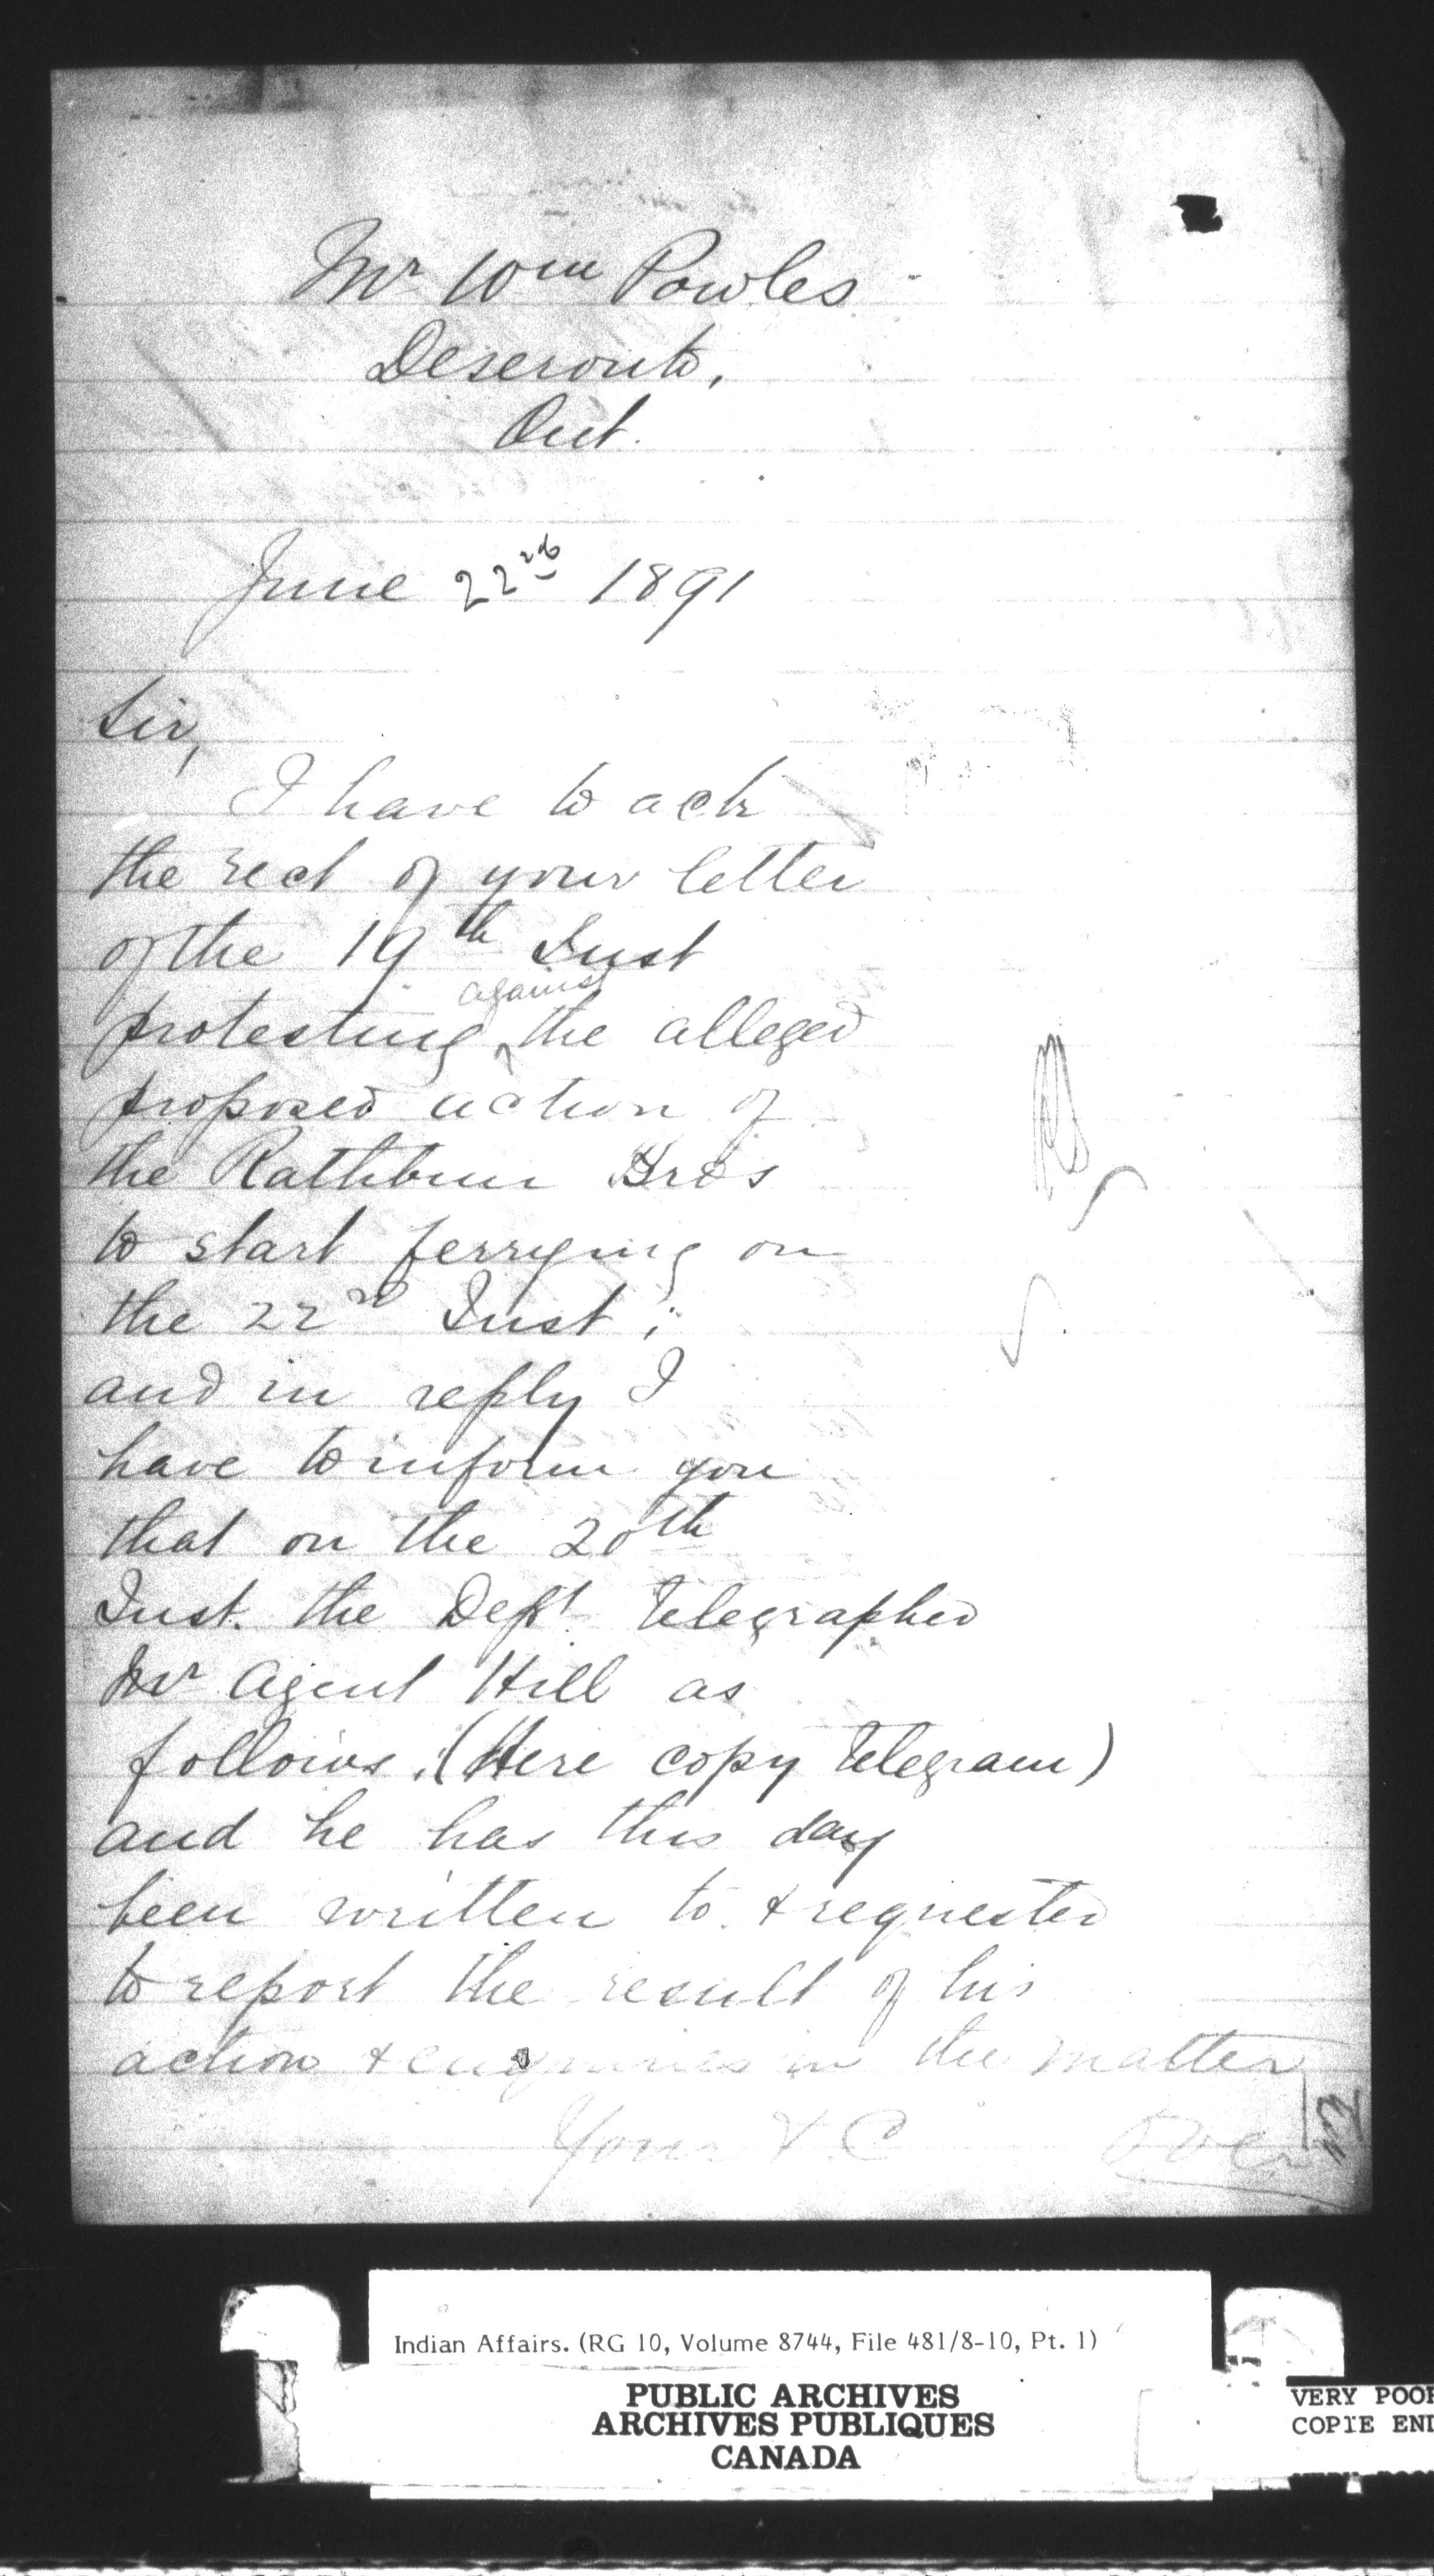 Mr Wm Powles
Deseronto,
Ont.
June 22nd 1891
Sir,
I have to ack
the rect of your letter
of the 19th Inst
against
protesting ^ the alleged
proposed action of
the Rathbun Bros
to start ferrying on
the 22nd Inst;
and in reply I
have to inform you
that on the 20th
Inst. the Dept telegraphed
Mr Agent Hill as
follows. (Here copy telegram)
and he has this day
been written to & requested
to report the result of his
action & enquiries in the matter
Yours & C
Over
Indian Affairs. (RG 10, Volume 8744, File 481/8-10, Pt. 1)
PUBLIC ARCHIVES
ARCHIVES PUBLIQUES
CANADA
VERY POOR
COPIE EN